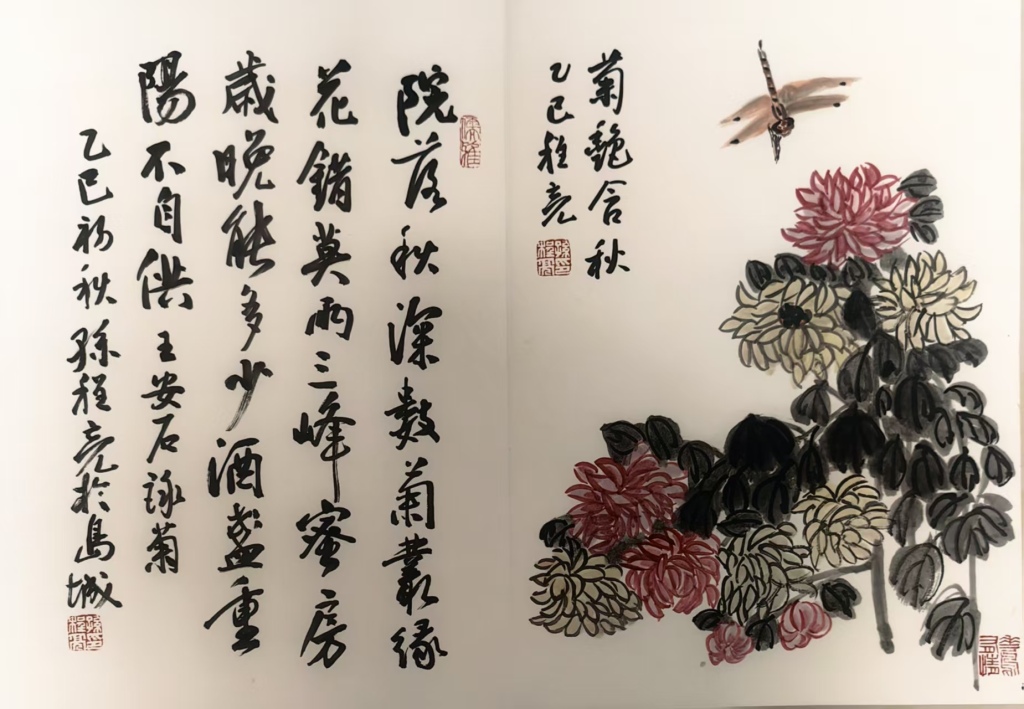 菊艷含秋
乙巳程亮
院落秋深數菊叢緣
花錯莫兩三峰蜜房
歲晚能多少酒盞重
陽不自供王安石詠菊
乙巳初秋孫程亮於島城